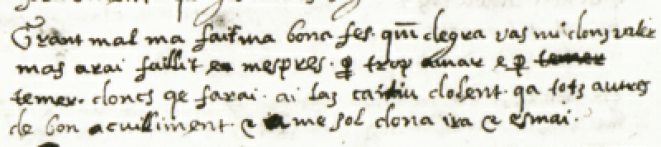 Grant mal ma faitma bona fes. qm degra vas mi dons valer
mas arai faillit e mespres. p trop amar e p temer
temer. doncs qe farai. ai las caitiu dolent. qa totz autres
de bon acuilliment e a me sol dona ira e esmai.